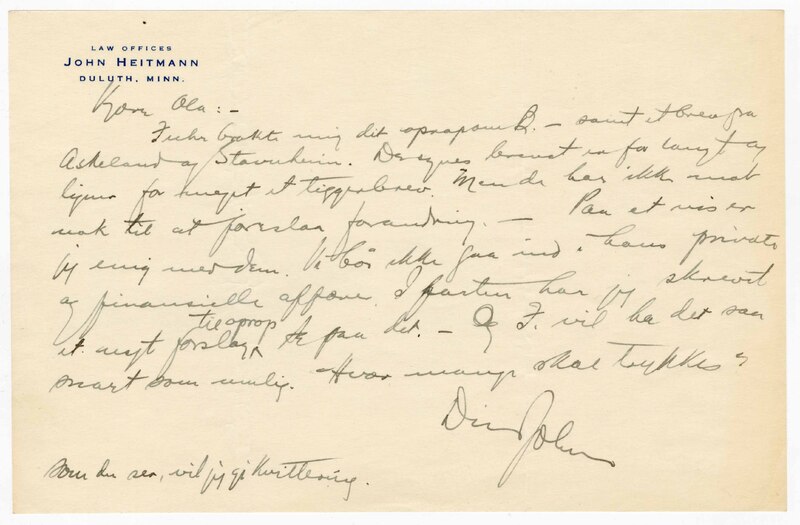 LAW OFFICES
JOHN HEITMANN
DULUTH, MINN.
Kjære Ola:-
Fuhr bragte mig dit opraab – samt et brev fra
Askeland og Stavnheim. De synes brevet er for langt og
ligner for meget et tiggerbrev. Men de har ikke mot
nok til at foreslaa forandring. – Paa et vis er
jeg enig med dem. Vi bö ikke gaa ind i hans private
og finansielle affærer. I farten har jeg skrevet
et nyt forslag til oprop. Se paa det. – Og F. vil ha det saa
snart som mulig. Hvor mange skal trykkes?
Din John
Som du ser, vil jeg gi kvittering.